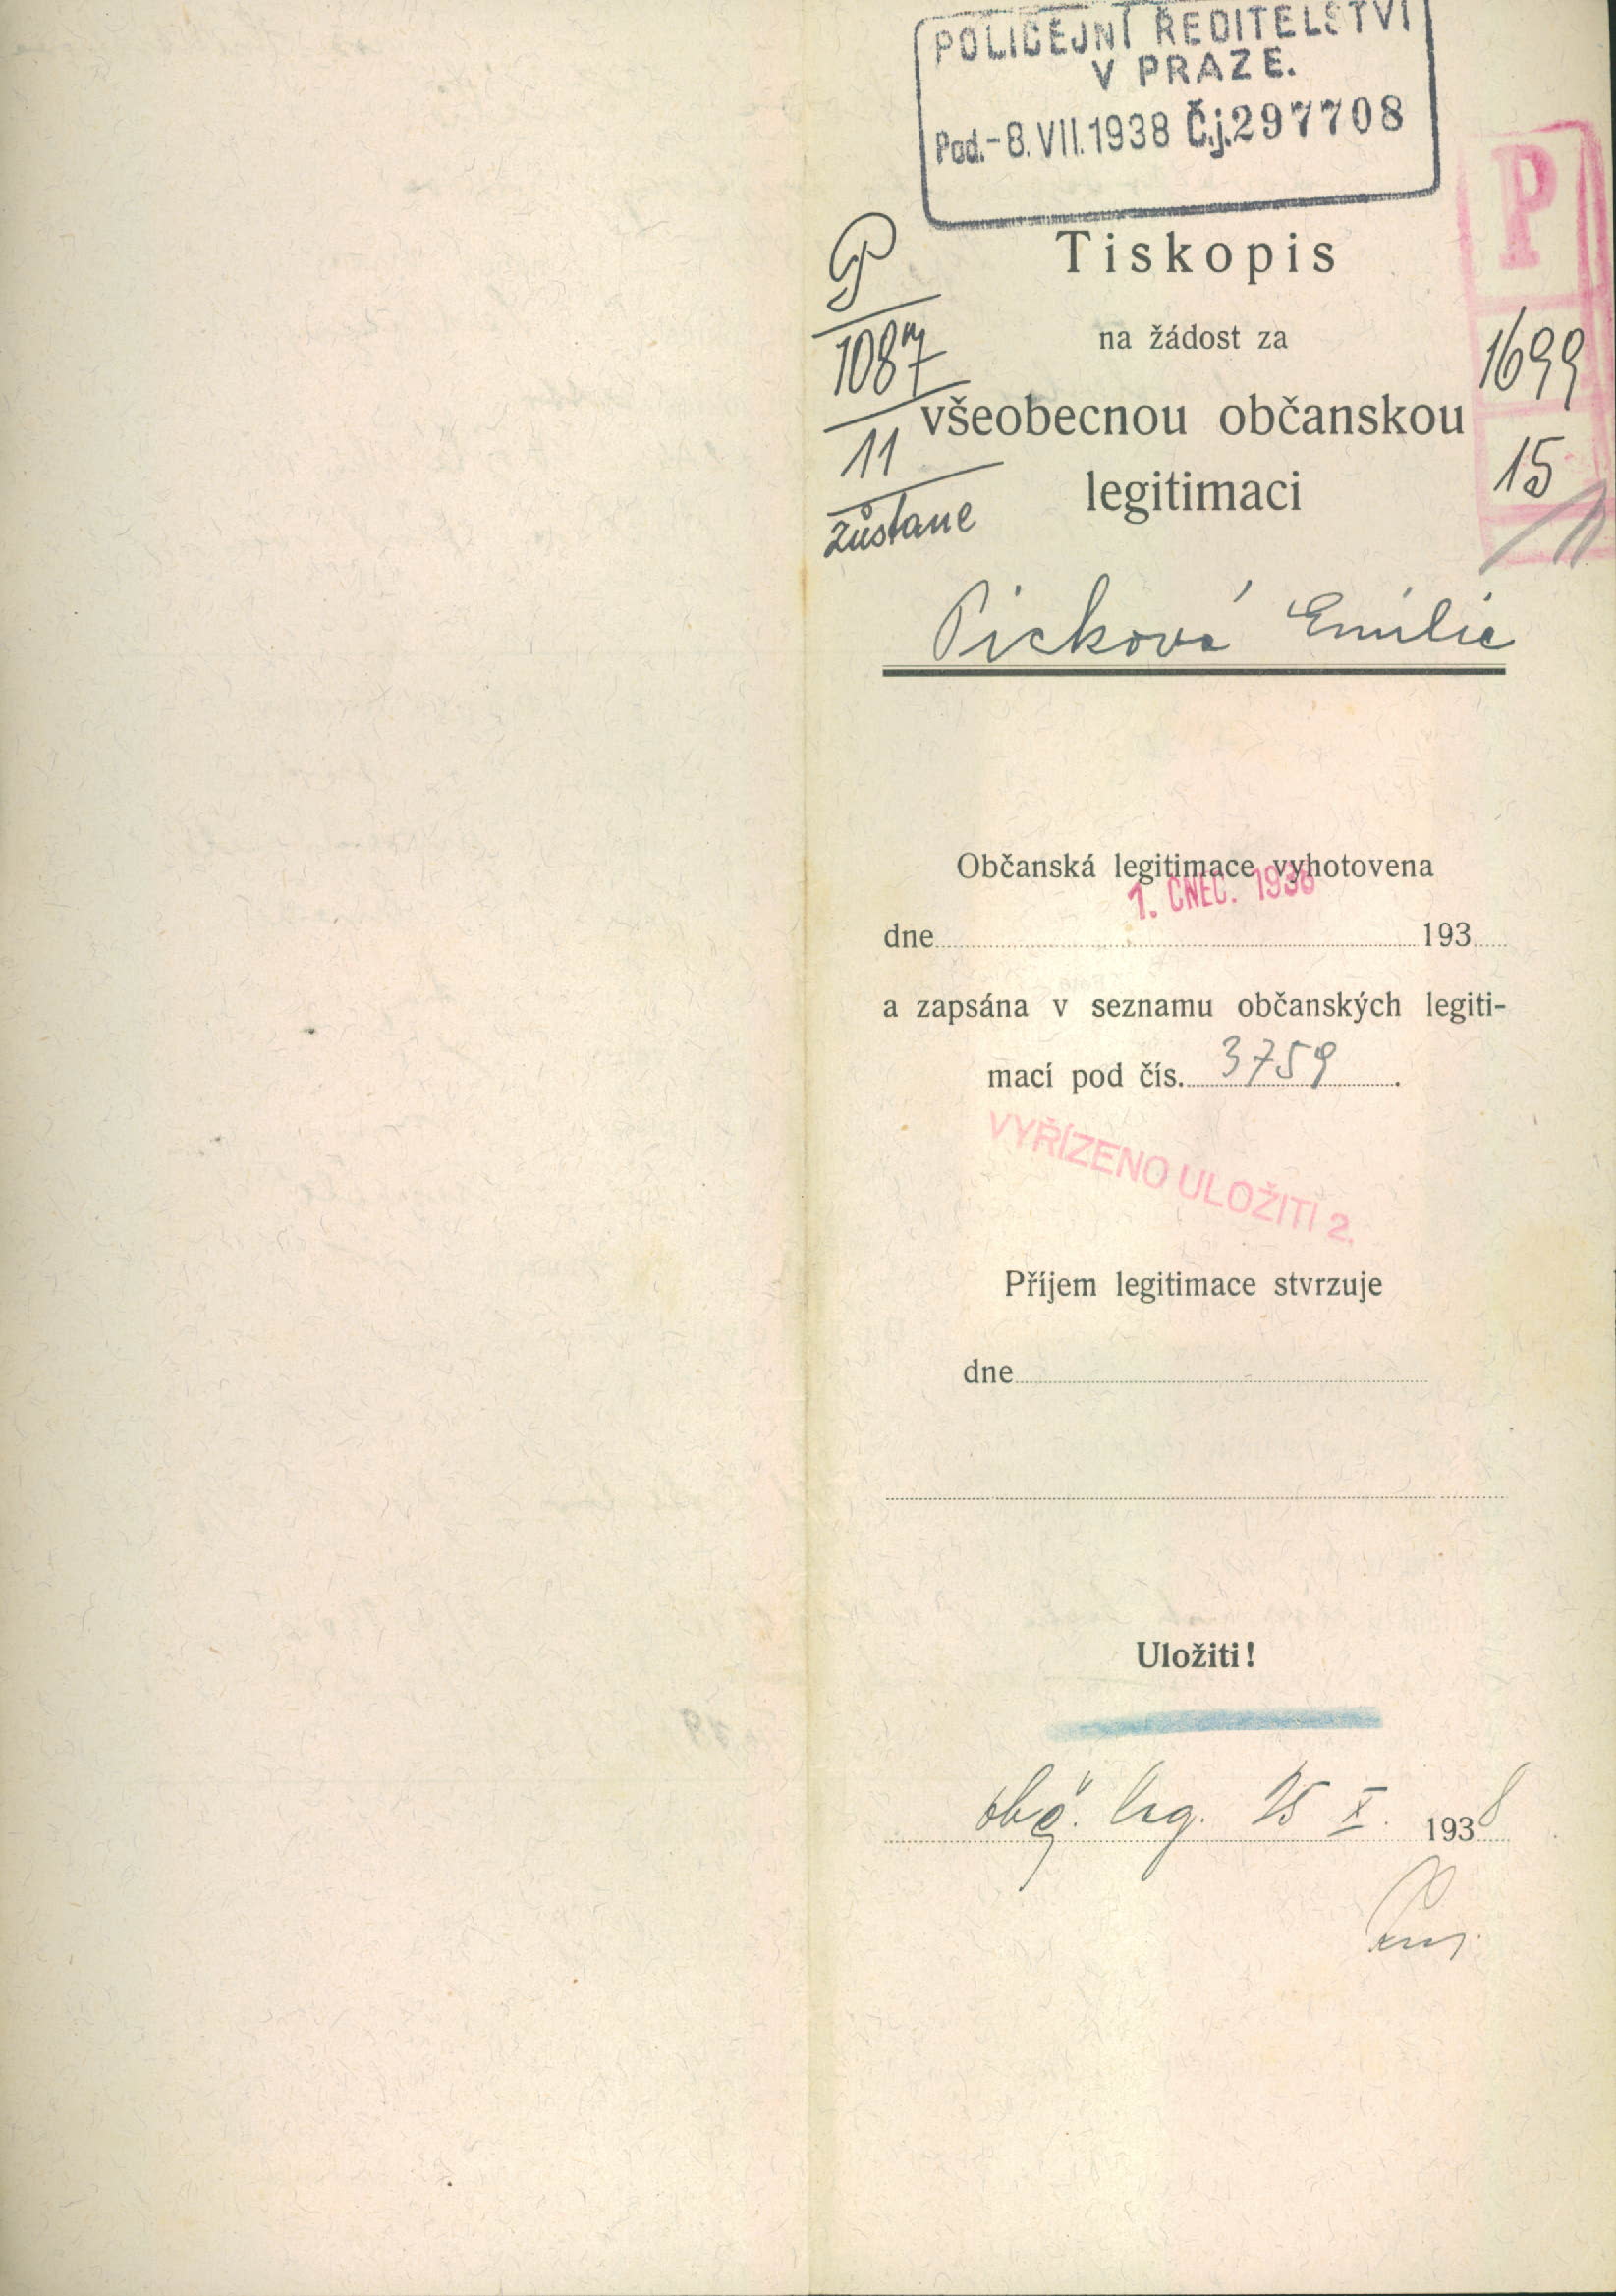 POLICEJNÍ ŘEDITELSTVÍ
V PRAZE.
Pod.-8.VII.1938 Č.j.297708
P
P
Tiskopis
1087
na žádost za
1699
všeobecnou občanskou
11
15
legitimaci
zůstane
Picková Emilie
Občanská legitimace vyhotovena
1. ČNEC. 1938
dne 193
a zapsána v seznamu občanských legiti-
mací pod čís. 3759.
VYŘÍZENO ULOŽITI 2.
Příjem legitimace stvrzuje
dne
Uložiti!
obč. leg. 25 X. 1938